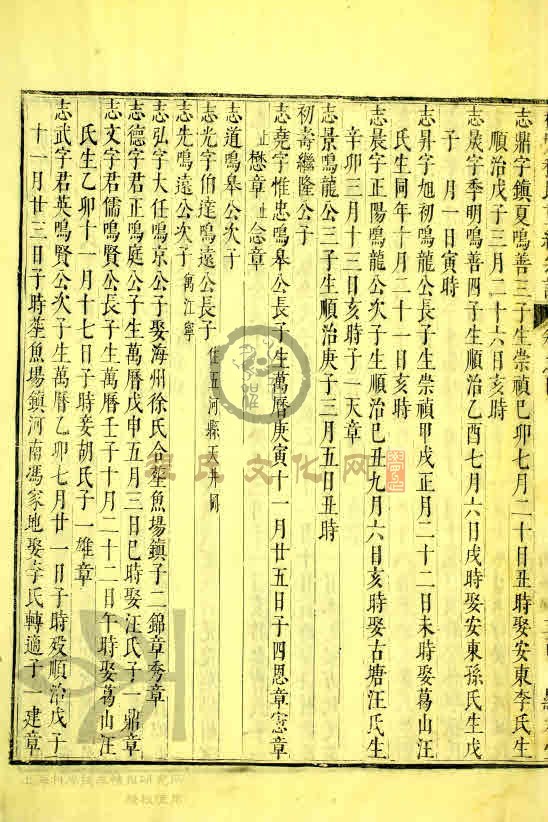 志鼎字鎮夏鳴善三子生崇禎己卯七月二十日丑時娶安東李氏生
順治戊子三月二十六日亥時
志晟字季明鳴善四子生順治乙酉七月六日戌時娶安東孫氏生戊
子 月一日寅時
志昇字旭初鳴龍公長子生崇禎甲戌正月二十二日未時娶葛山汪
氏生同年十月二十一日亥時
志晨字正陽鳴龍公次子生順治己丑九月六日亥時娶古塘汪氏生
辛卯三月十三日亥時子一天章
志景鳴龍公三子生順治庚子三月五日丑時
初壽繼隆公子
志堯字惟忠鳴皋公長子生萬曆庚寅十一月廿五日子四恩章憲章
止懋章止念章
志道鳴皋公次子
志光字伯達鳴遠公長子 住五河縣天井岡
志先鳴遠公次子 寓江寧
志弘字大任鳴京公子娶海州徐氏合塟魚場鎮子二錦章秀章
志德字君正鳴庭公子生萬曆戊申五月三日巳時娶汪氏子一鼎章
志文字君儒鳴賢公長子生萬曆壬子十月二十二日午時娶葛山汪
氏生乙卯十一月十七日子時妾胡氏子一雄章
志武字君英鳴賢公次子生萬曆乙卯七月廿一日子時歿順治戊子
十一月廿三日子時塟魚場鎮河南馮家地娶李氏轉適子一建章
程氏文化网
上海科学技术情报研究所
授权使用